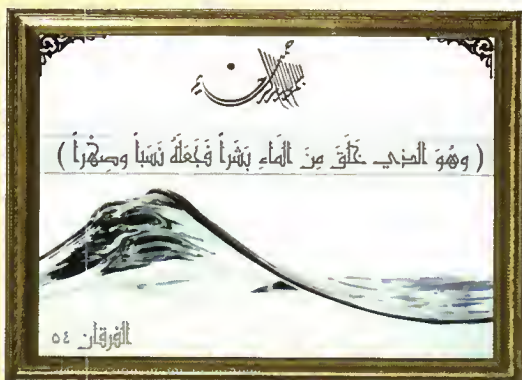 بسم الله الرحمن الرحيم
( وهُوَ الذي خَلَقَ مِنَ الَماءِ بَشَراً فَجَعَلَهُ نَسَباً وصِهْراً )
الفرقان ٥٤